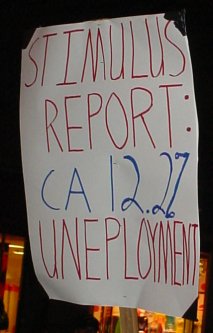 STIMULUS
REPORT:
CA 12.27
UNEPLOYMENT